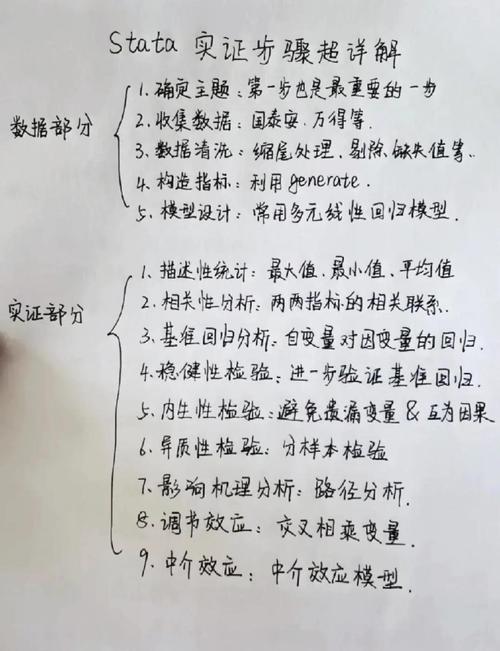 Stata 实证步骤超详解
数据部分
1. 确定主题：第一步也是最重要的一步
2. 收集数据：国泰安、万得等.
3. 数据清洗：缩尾处理、剔除缺失值等.
4. 构造指标：利用generate.
5. 模型设计：常用多元线性回归模型.
实证部分
1. 描述性统计：最大值、最小值、平均值
2. 相关性分析：两两指标的相关联系.
3. 基准回归分析：自变量对因变量的回归.
4. 稳健性检验：进一步验证基准回归.
5. 内生性检验：避免遗漏变量 & 互为因果
6. 异质性检验：分样本检验
7. 影响机理分析：路径分析.
8. 调节效应：交叉相乘变量.
9. 中介效应：中介效应模型.